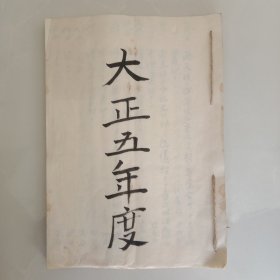 大正五年度